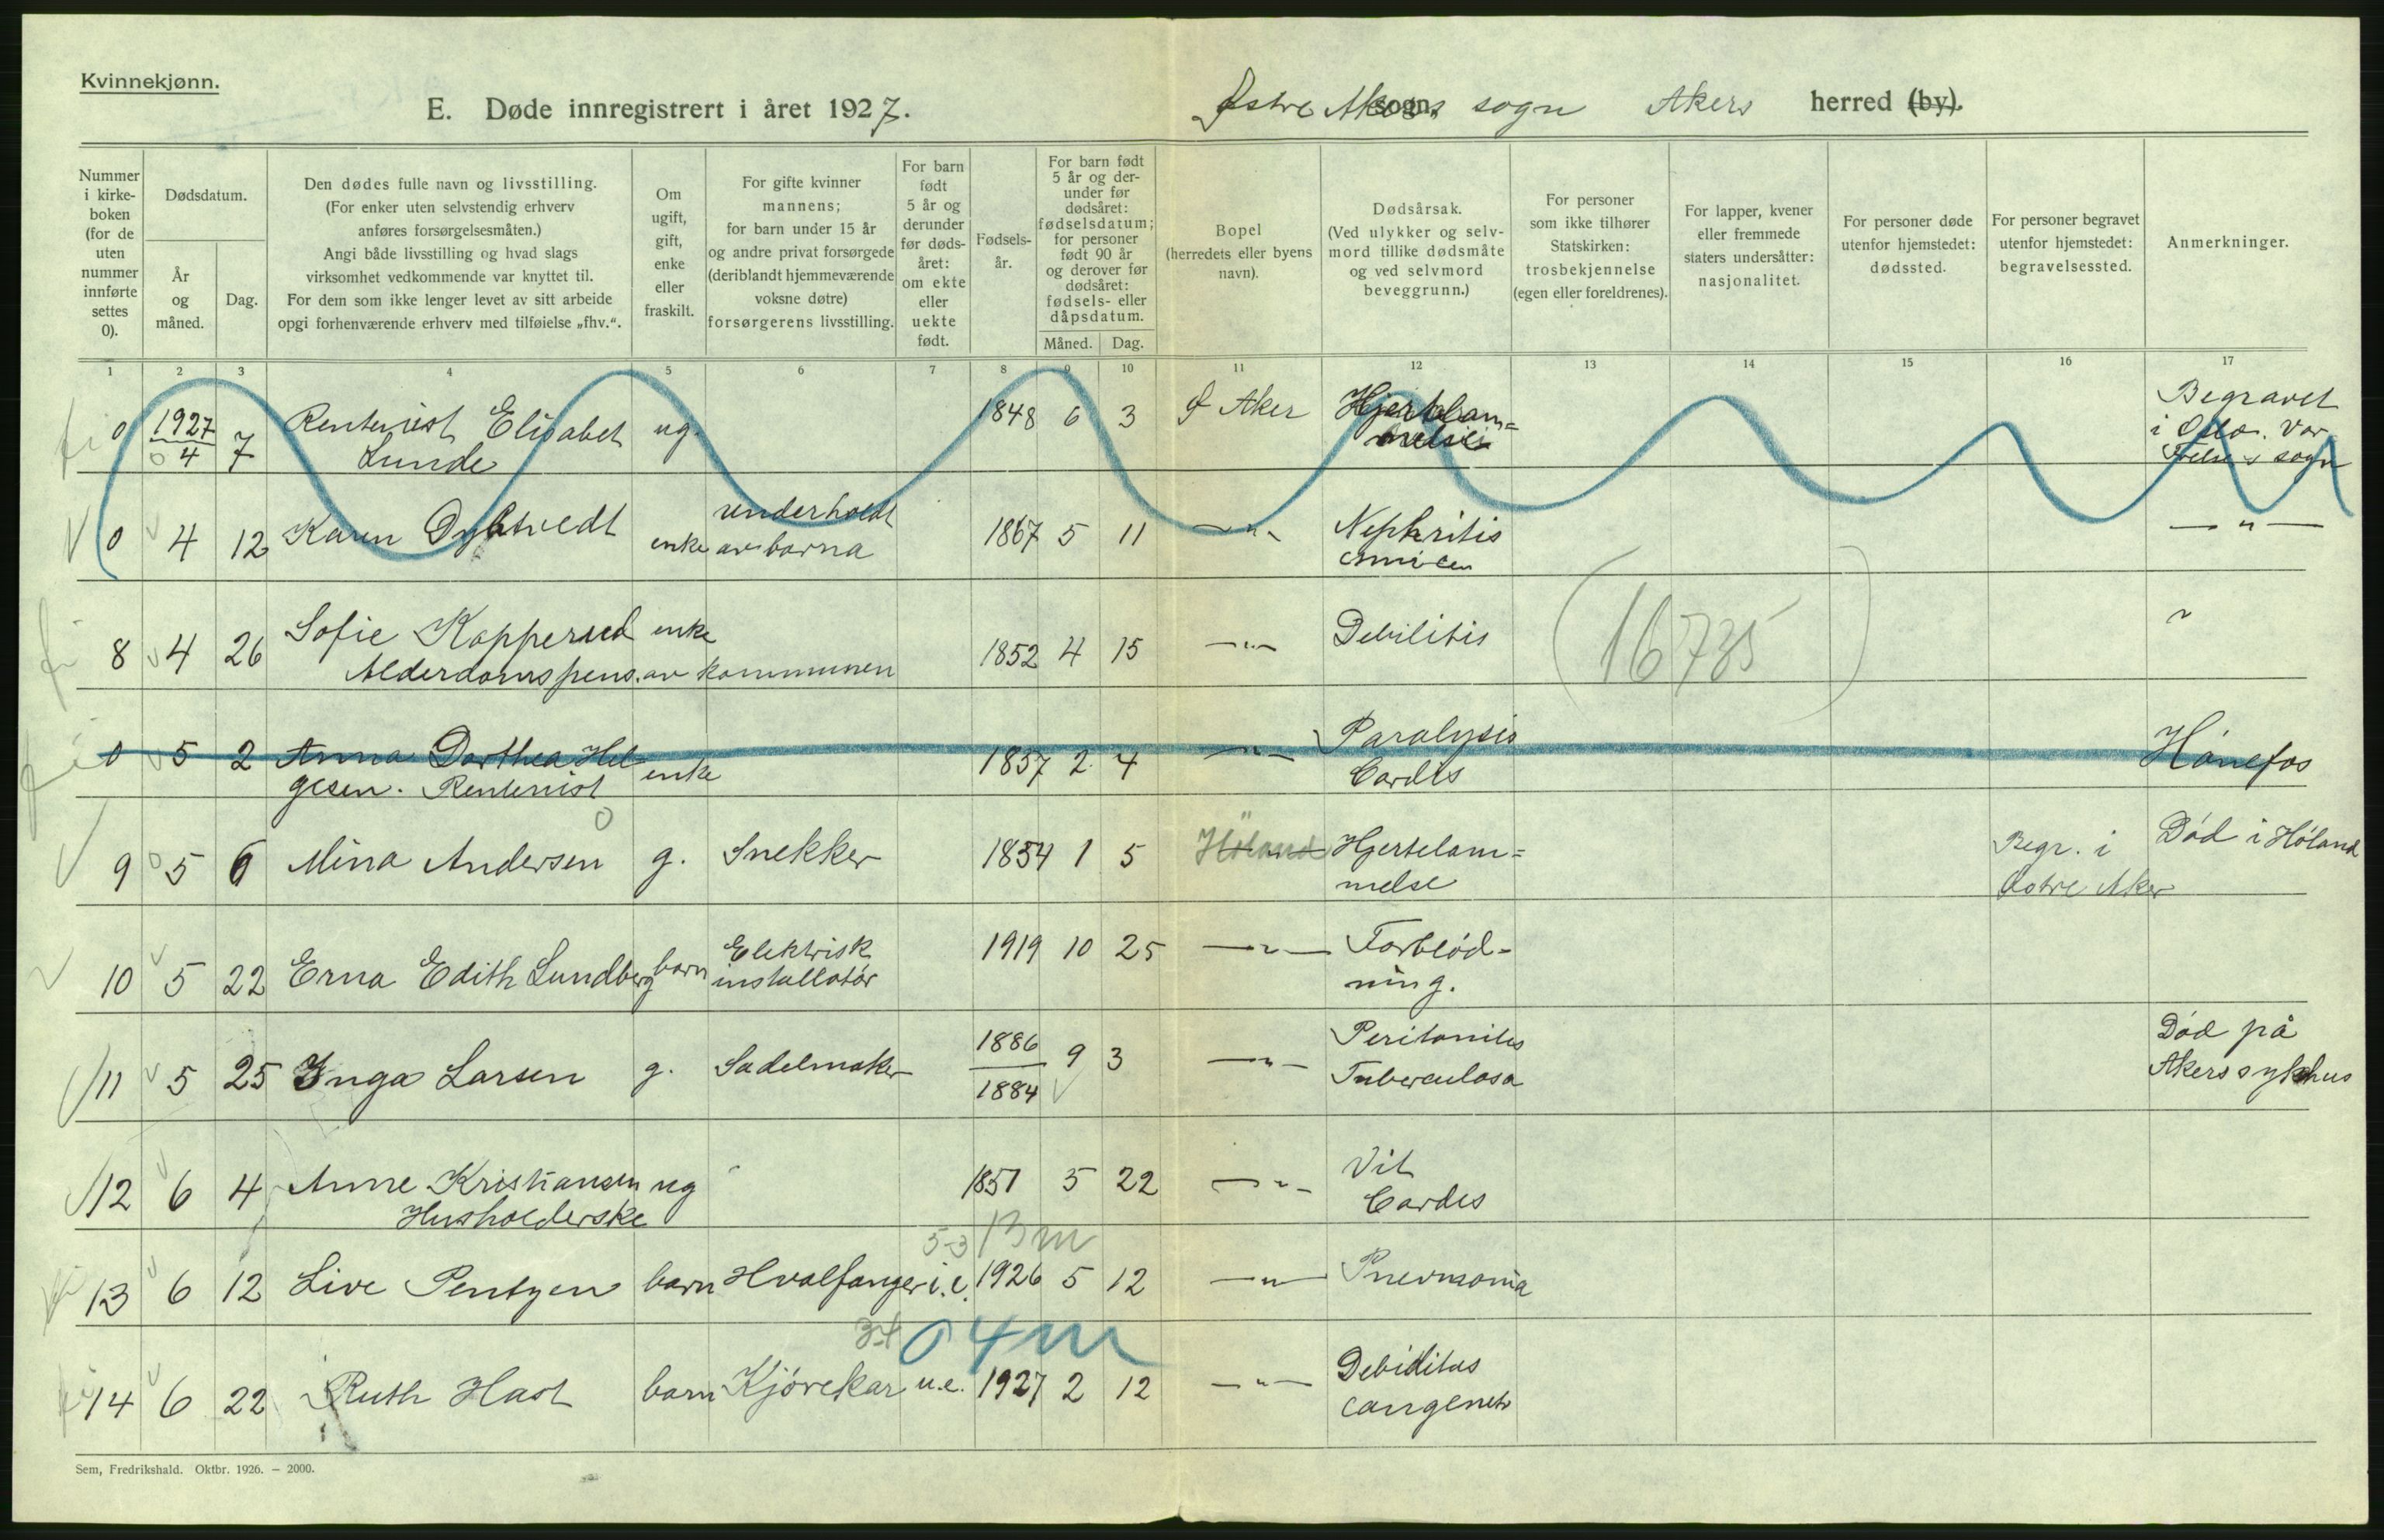 Kvinnekjønn.
E. Døde innregistrert i året 1927.
Østre Akers sogn Akers herred (by).
Nummer i kirkeboken (for de uten nummer innførte settes 0).
Dødsdatum.
År og måned.
Dag.
Den dødes fulle navn og livsstilling.
(For enker uten selvstendig erhverv
anføres forsørgelsesmåten.)
Angi både livsstilling og hvad slags
virksomhet vedkommende var knyttet til.
For dem som ikke lenger levet av sitt arbeide
opgi forhenværende erhverv med tilføielse „fhv.“.
Om ugift, gift, enke eller fraskilt.
For gifte kvinner
mannens;
for barn under 15 år
og andre privat forsørgede
(deriblandt hjemmeværende
voksne døtre)
forsørgerens livsstilling.
For barn født 5 år og derunder før dødsåret: om ekte eller uekte født.
Fødselsår.
For barn født 5 år og derunder før dødsåret: fødselsdatum; for personer født 90 år og derover før dødsåret: fødsels- eller dåpsdatum.
Måned. Dag.
Bopel
(herredets eller byens
navn).
Dødsårsak.
(Ved ulykker og selvmord tillike dødsmåte
og ved selvmord
beveggrunn.)
For personer
som ikke tilhører
Statskirken:
trosbekjennelse
(egen eller foreldrenes).
For lapper, kvener
eller fremmede
staters undersåtter:
nasjonalitet.
For personer døde
utenfor hjemstedet:
dødssted.
For personer begravet
utenfor hjemstedet:
begravelsessted.
Anmerkninger.
1 2 3 4 5 6 7 8 9 10 11 12 13 14 15 16 17
0 1927 4 7 Rentenist Elisabet Lunde ug. 1848 6 3 Ø Aker Hjertelammelse Begravet i Oslo. Vor Frelsers sogn
0 4 12 Karen enke underholdt av barna 1867 5 11 —"— Nephritis —"—
8 4 26 Sofie Kopperud enke
Alderdomspens. av kommunen 1852 4 15 —"— Debilitis (16735) "
0 5 2 Anna Dorthea Helgesen. Rentenist enke 1857 2 4 —"— Paralysis Cordis Hönefos
9 5 6 Mina Andersen g. Snekker 1854 1 5 Höland Hjertelammelse Begr. i Østre Aker Död i Höland
10 5 22 Erna Edith Lundberg barn Elektrisk installatör 1919 10 25 —"— Forblödning.
11 5 25 Inga Larsen g. Sadelmaker 1886 1884 9 3 —"— Peritonites Tuberculosa Död på Akers sykehus
12 6 4 Anne Kristiansen ug
Husholderske 1851 5 22 —"— Vit Cordis
53 13 m
13 6 12 Live Pentzen barn Hvalfanger i.e. 1926 5 12 —"— Pnevmonia
0 4 m
14 6 22 Ruth Hast barn Kjörekar u.e. 1927 2 12 —"— Debiditas congenets
Sem, Fredrikshald. Oktbr. 1926. – 2000.